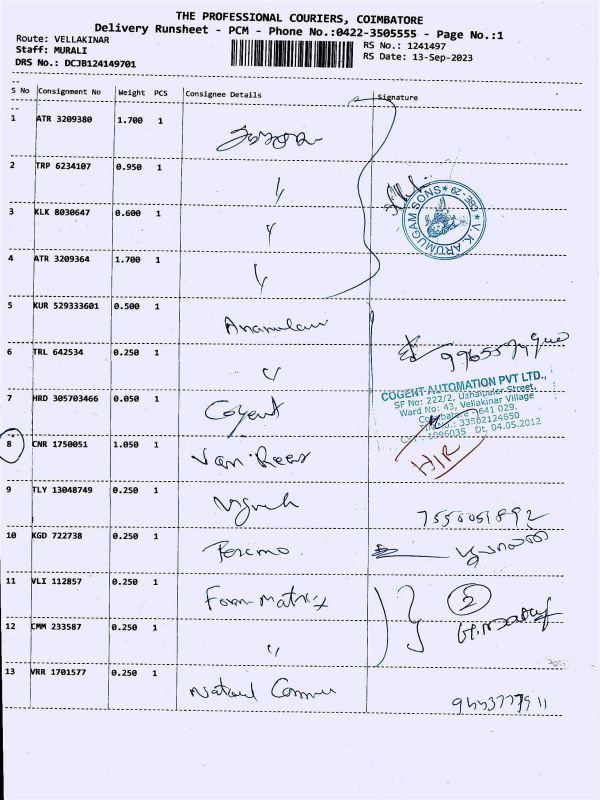 THE PROFESSIONAL COURIERS, COIMBATORE
Delivery Runsheet - PCM - Phone No.:0422-3505555 - Page No.:1
Route: VELLAKINAR
Staff: MURALI
DRS No.: DCJB124149701
RS No.: 1241497
RS Date: 13-Sep-2023
S No Consignment No Weight PCS Consignee Details Signature
1 ATR 3209380 1.700 1
2 TRP 6234107 0.950 1 "
3 KLK 8030647 0.600 1 "
4 ATR 3209364 1.700 1 "
V.K. ARUMUGAM SONS
CBE-29
5 KUR 529333601 0.500 1
6 TRL 642534 0.250 1 "
7 HRD 305703466 0.050 1 Cogent
COGENT AUTOMATION PVT LTD.,
SF No: 222/2, Uzhaipalar Street,
Ward No: 43, Vellakinar Village
Coimbatore - 641 029.
33502124650
1096035 Dt. 04.05.2012
8 CNR 1750051 1.050 1 Van Rees
H/R
9 TLY 13048749 0.250 1 Vignesh
10 KGD 722738 0.250 1
11 VLI 112857 0.250 1 Form matrix
2
12 CMM 233587 0.250 1 "
13 VRR 1701577 0.250 1